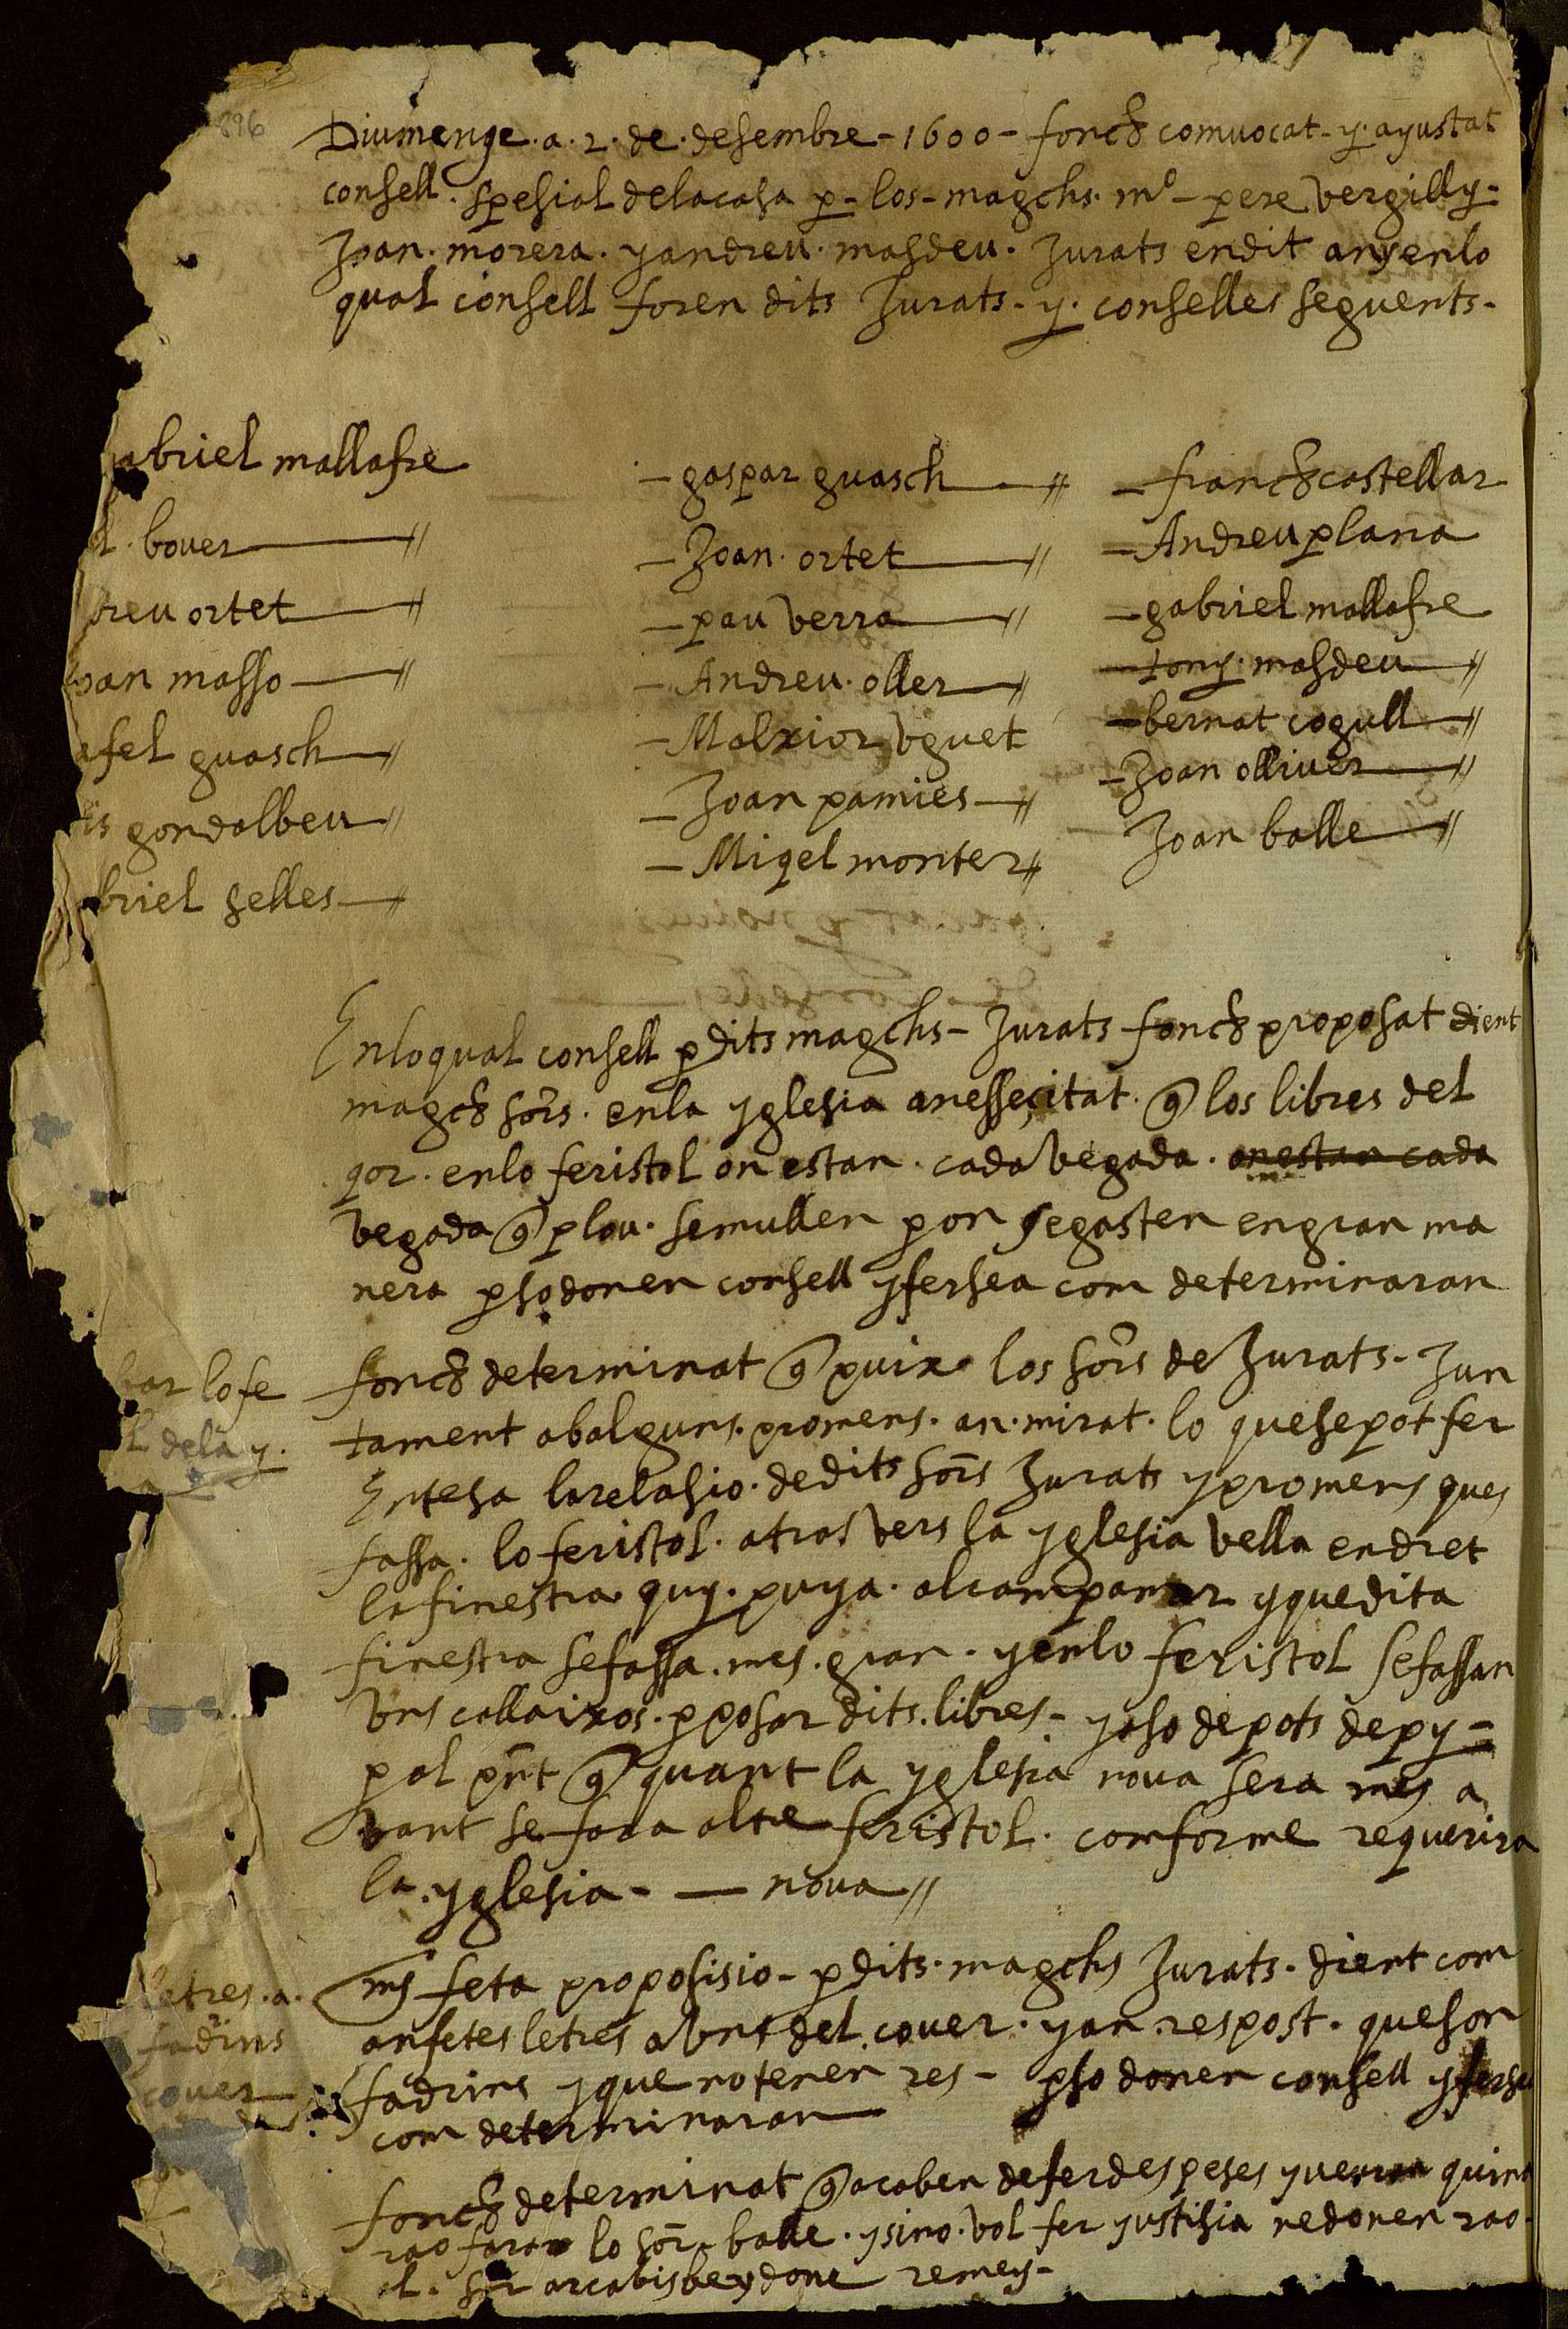 896
Diumenge . a . 2 . de . desembre - 1600 - fonch comvocat - y . ayustat
consell . spesial delacasa p - los - magchs . mº - pere vergilly -
Joan . morera . yandreu . masdeu . Jurats endit anyenlo
qual consell foren dits Jurats - y . conselles seguents -
abriel mallafre
bouer
dreu ortet
oan masso
afel guasch
is gondalbeu
briel selles
- gaspar guasch
- Joan . ortet
- pau verra
- Andreu . oller
- Malxior vguet
- Joan pamies
- Miqel monter
- franch castellar
- Andreu plana
- gabriel mallafre
- tony . masdeu
- bernat cogull
- Joan olliver
Joan balle
Enloqual consell p dits magchs - Jurats fonch proposat dient
magch sors . enla yglesia anessecitat . q los libres del
qor . enlo feristol on estan . cada vegada . onestan cada
vegada q plou . semullen p on segasten engran ma
nera pso donen consell yfersea com determinaran
lofe
dela y .
fonch determinat q puix los sors de Jurats - Jun
tament abalguns . promens . an . mirat . lo quesepot fer
Entesa larelasio . dedits sors Jurats ypromens ques
fassa . lo feristol . atras vers la yglesia vella endret
lafinestra quy . puya . alcampanar yquedita
finestra sefassa . mes . gran . yenlo feristol sefassan
vns callaixos . p posar dits . libres - yaso depots depy -
p al pnt q quant la yglesia nova sera mes a
vant se fara altre feristol . comforme requerira
la . yglesia - — nova //
letres . a .
fadrins
couer
ms feta proposisio - p dits . magchs Jurats . dient com
anfetes letres a vns del . cover . yan . respost . queson
fadrins yque notenen res - pso donen consell yfersea
com determinaran
fonch determinat q acaben defer despeses y quina
rao faran lo sor . balle . ysino . vol fer yustisia nedonen rao .
al . sor arcabisbe ydone remey -